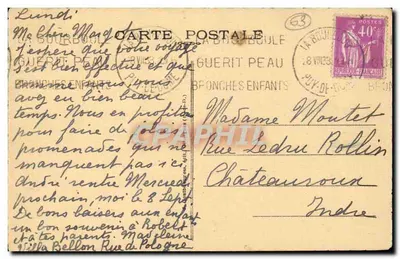 Lundi
CARTE POSTALE
Ma Chère Margot
LA BOURBOULE
GUERIT PEAU
BRONCHES ENFANTS
PUY-DE-DOME
40
63
J'espère que votre voyage
s'est bien effectué et que
vous
avez eu bien beau
temps. Nous en profitons
pour faire de
promenades qui ne
manquent pas ici
André rentre Mercredi
prochain, moi le 8 Sept.
De bons baisers aux enfants
un bon souvenir à Robert
et à tes parents. Madeleine
Villa Bellon Rue de Pologne
Madame Moutet
Rue Ledru Rollin
Châteauroux
Indre